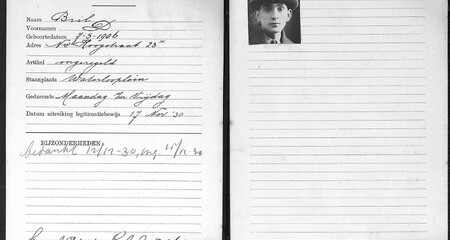 Naam Bril
Voornamen D
Geboortedatum 7-3-1906
Adres Nw Hoogstraat 23
Artikel ongeregeld
Staanplaats Waterlooplein
Gedurende Maandag t/m Vrijdag
Datum uitreiking legitimatiebewijs 17 Nov '30
BIJZONDERHEDEN:
bedankt 12/12-30, ing. 15/12-30